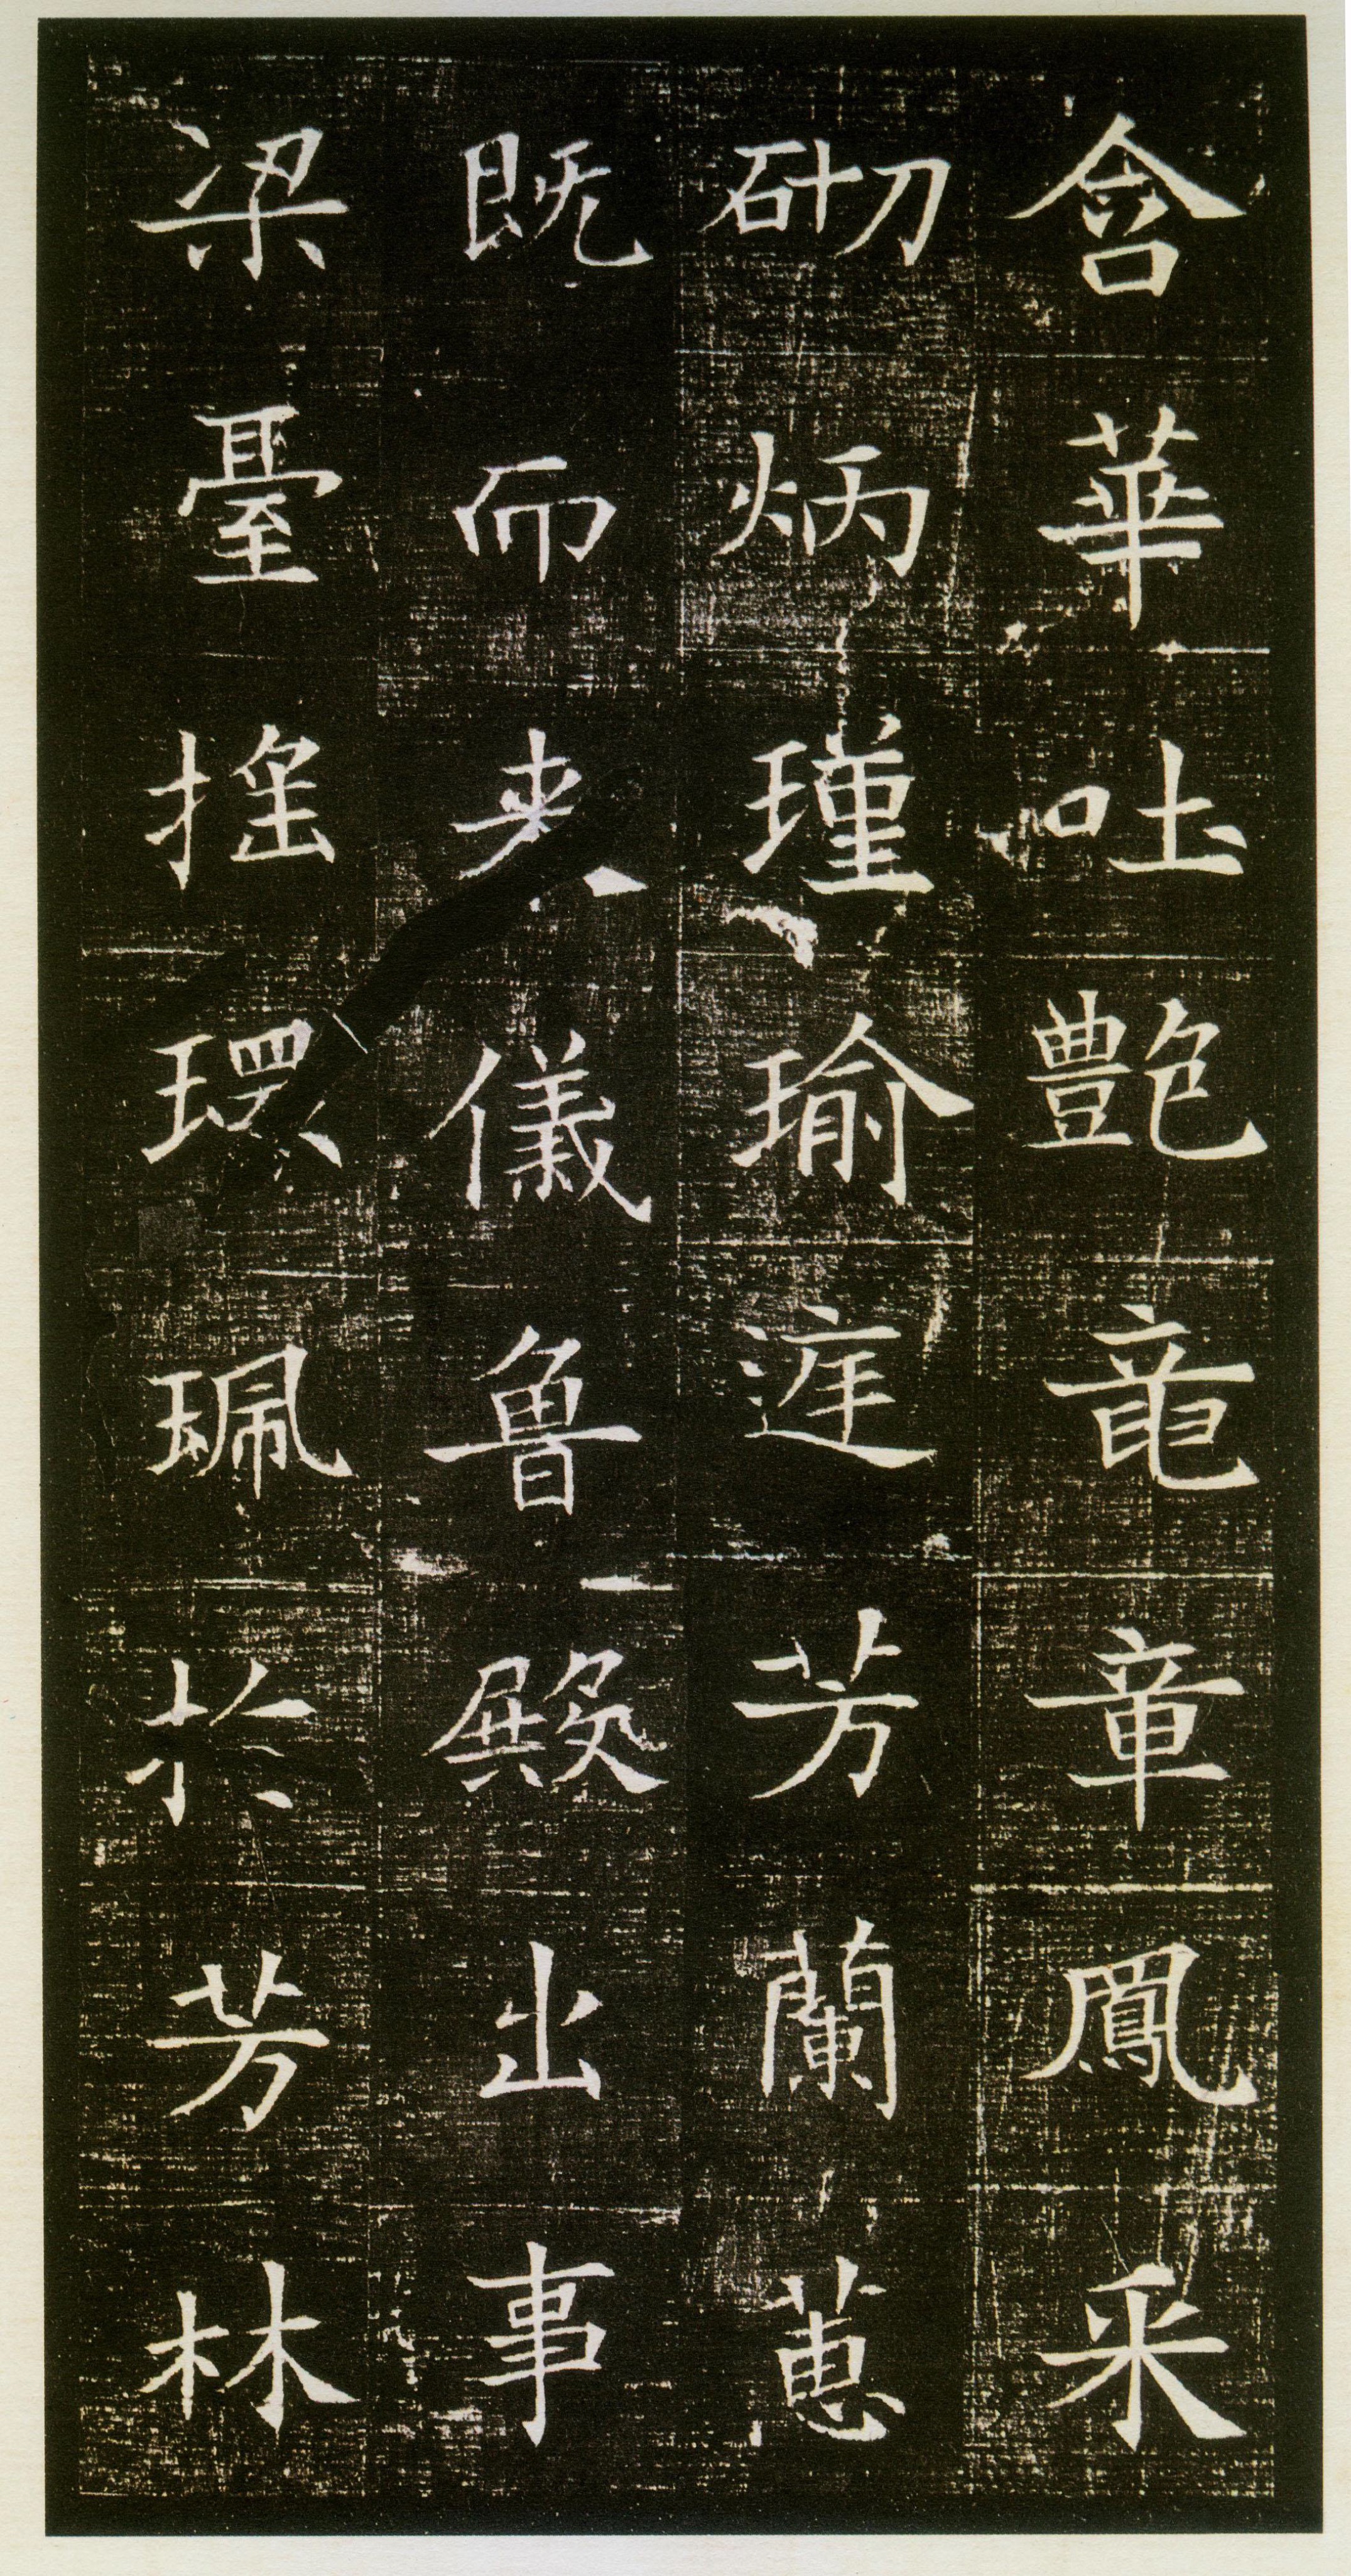 含華吐艷龍章鳳采
砌炳瑾瑜庭芳蘭蕙
既而來儀魯殿出事
梁臺搖環珮於芳林